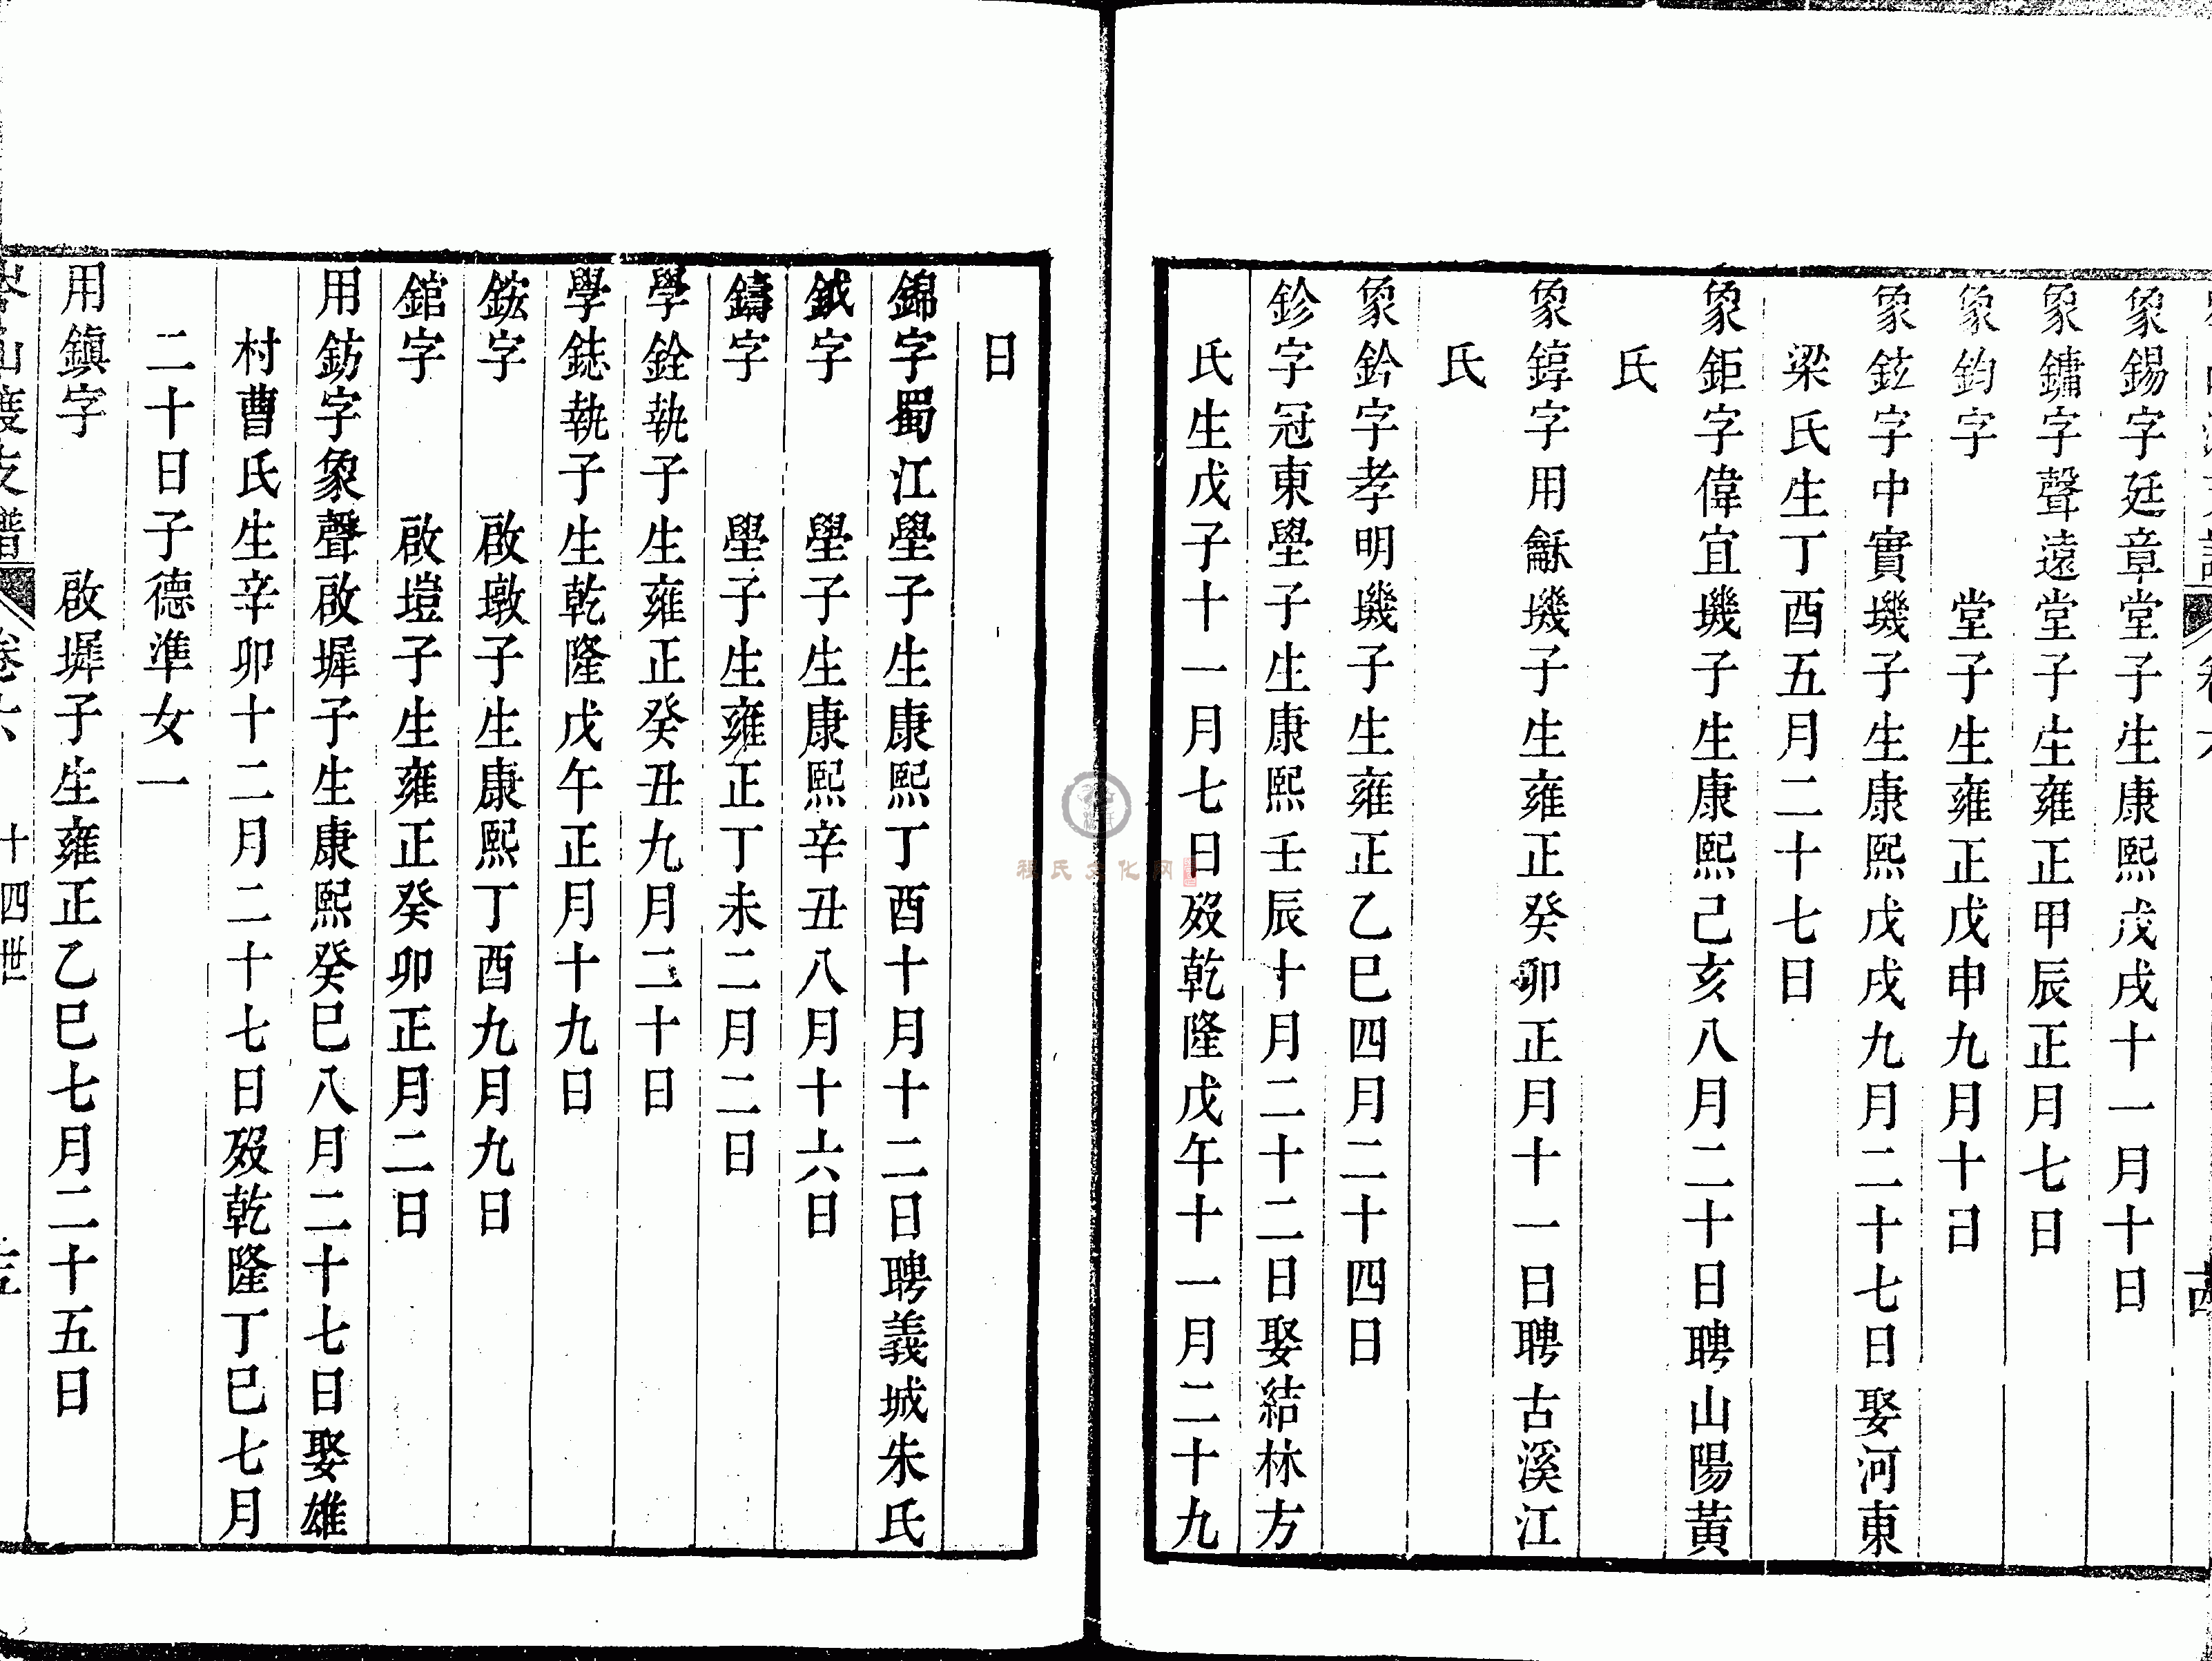 象錫字廷章堂子生康熙戊戌十一月十日
象鏞字聲遠堂子生雍正甲辰正月七日
象鈞字　　堂子生雍正戊申九月十日
象鉉字中實璣子生康熙戊戌九月二十七日娶河東
梁氏生丁酉五月二十七日
象鉅字偉宜璣子生康熙己亥八月二十日聘山陽黃
氏
象錞字用龢璣子生雍正癸卯正月十一日聘古溪江
氏
象鈐字孝明璣子生雍正乙巳四月二十四日
鉁字冠東壆子生康熙壬辰十月二十二日娶結林方
氏生戊子十一月七日歿乾隆戊午十一月二十九
日
錦字蜀江壆子生康熙丁酉十月十二日聘義城朱氏
鉞字　　壆子生康熙辛丑八月十六日
鑄字　　壆子生雍正丁未二月二日
學銓執子生雍正癸丑九月二十日
學鋕執子生乾隆戊午正月十九日
鋐字　　啟墩子生康熙丁酉九月九日
錧字　　啟塏子生雍正癸卯正月二日
用鈁字象聲啟墀子生康熙癸巳八月二十七日娶雄
村曹氏生辛卯十二月二十七日歿乾隆丁巳七月
二十日子德準女一
用鎮字　　啟墀子生雍正乙巳七月二十五日
卷六　十四世
程氏文化网